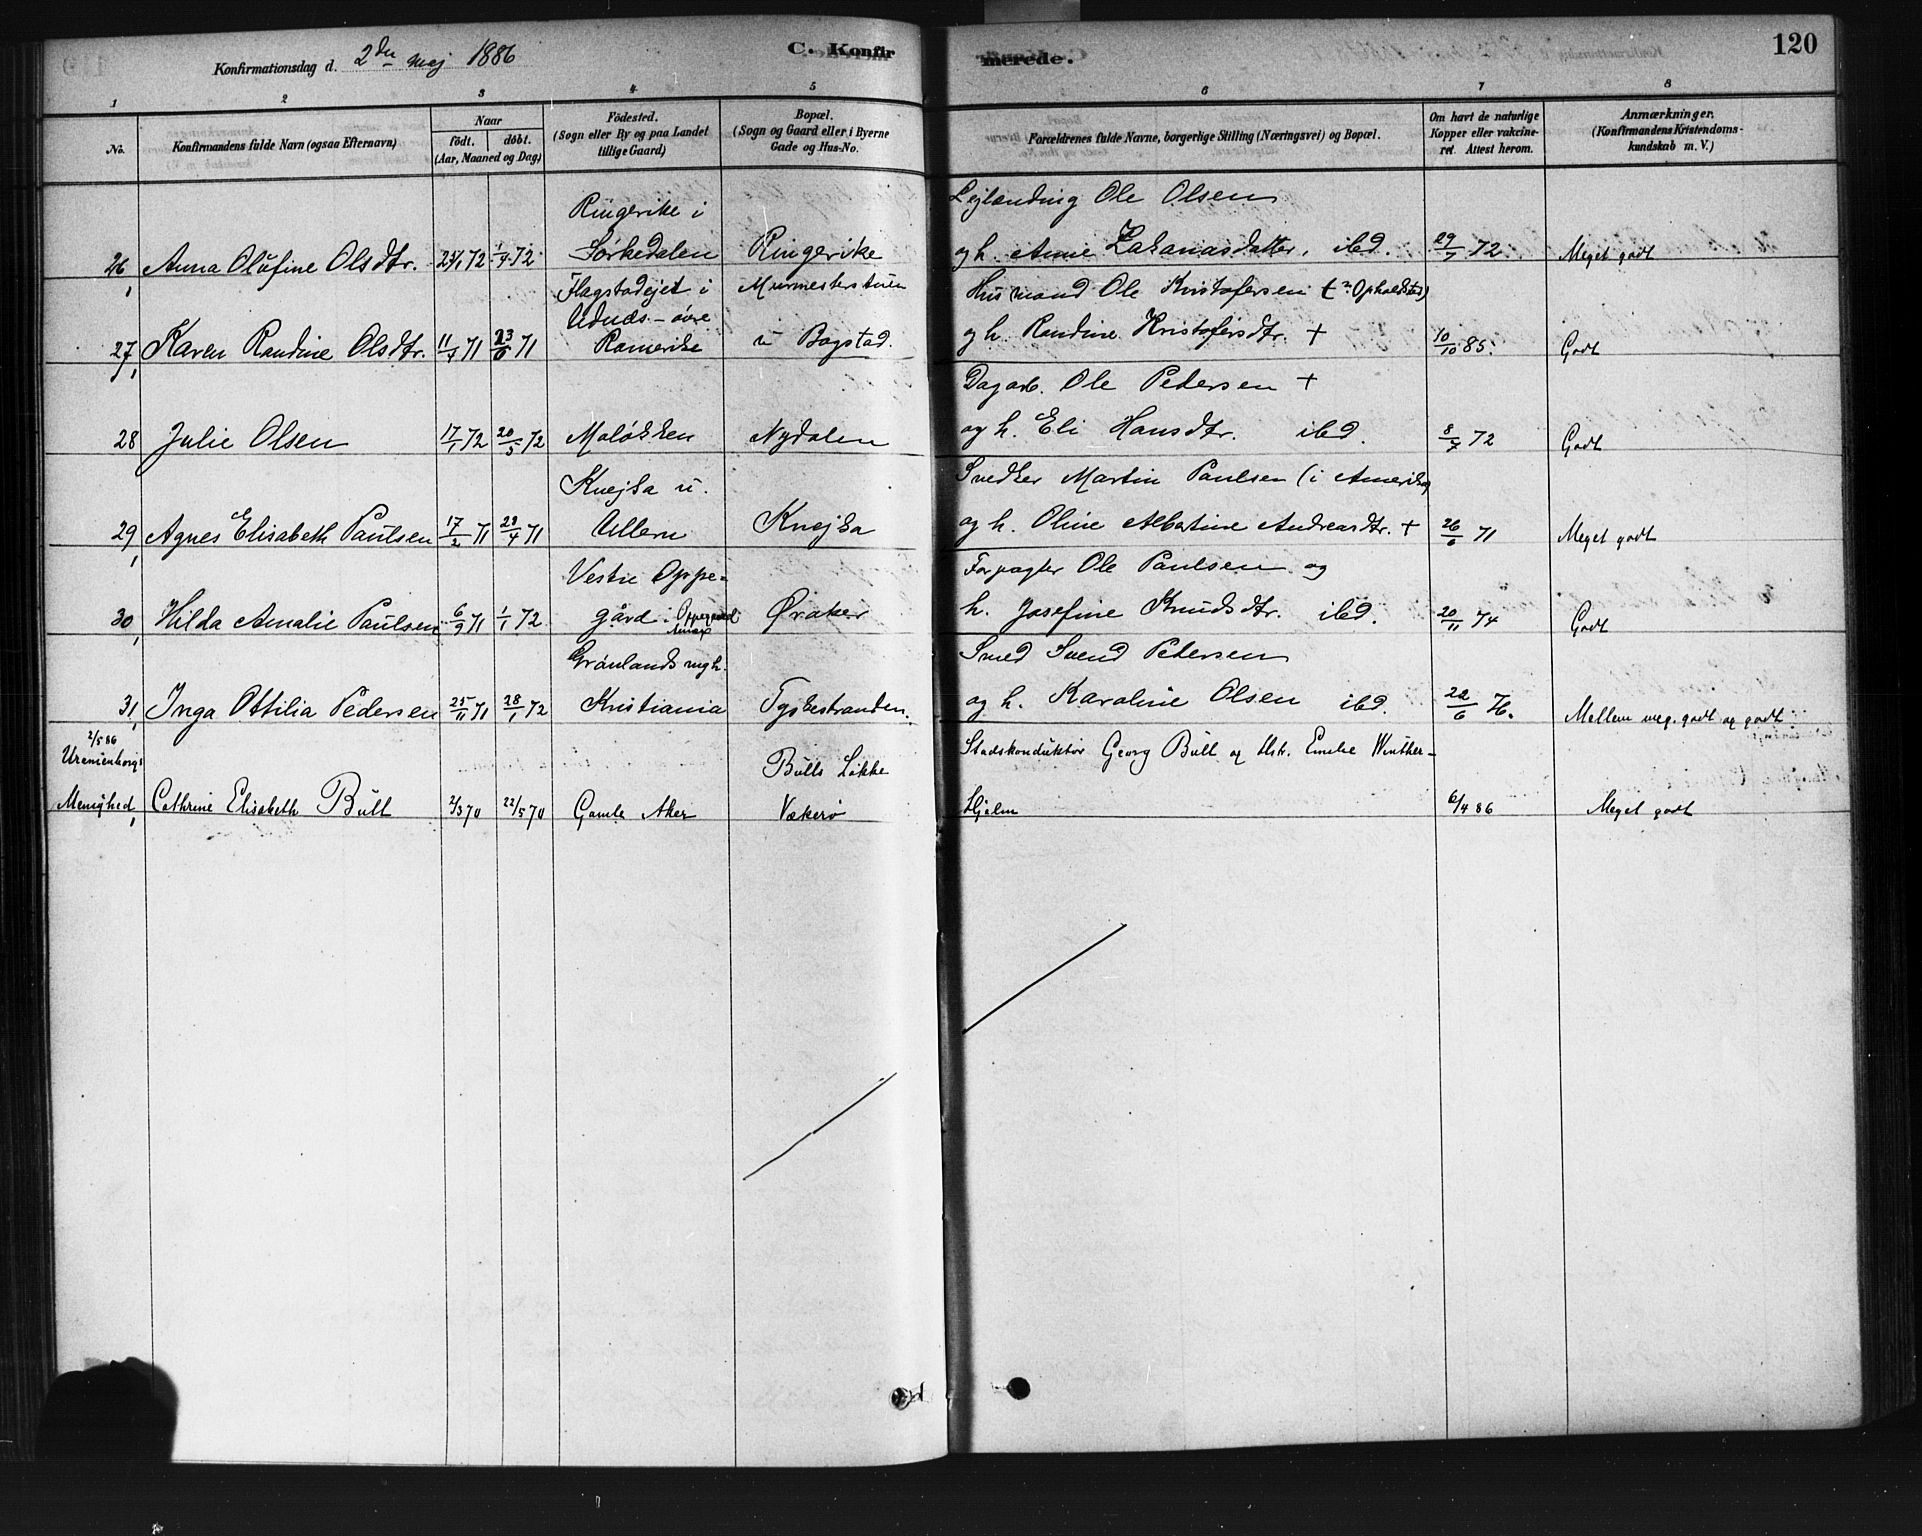 Konfirmationsdag d. 2den Maj 1886
C. Konfirmerede.
120
1 2 3 4 5 6 7 8
No.
Konfirmandens fulde Navn (ogsaa Efternavn)
Naar
födt. döbt.
(Aar, Maaned og Dag)
Födested.
(Sogn eller By og paa Landet
tillige Gaard)
Bopæl.
(Sogn og Gaard eller i Byerne
Gade og Hus-No.
Forældrenes fulde Navne, borgerlige Stilling (Næringsvei) og Bopæl.
Om havt de naturlige
Kopper eller vakcine-
ret. Attest herom.
Anmærkninger.
(Konfirmandens Kristendoms-
kundskab m. V.)
Ringerike i Lejlænding Ole Olsen
26, Anna Olüfine Olsdtr. 72 1/4 72 Sørkedalen Ringerike og h. Anne Zakariasdatter, ibd. 29/7 72 Meget godt
Flagstadejet i Murmesterstuen Husmand Ole Kristofersen (? Opholdsted)
Udnæs - øvre
27, Karen Randine Olsdtr. 11/4 71 23/6 71 Romerike u Bogstad. og h. Randine Kristofersdtr. + 10/10 85. Godt
Dagarb. Ole Pedersen +
28 Julie Olsen 17/1 72 20/5 72 Moløkken Nydalen og h. Eli Hansdtr. ibd. 8/7 72 Godt
Knejka u. Snedker Martin Paulsen (i Amerika)
29, Agnes Elisabeth Paulsen 17/2 71 28/4 71 Ullern Knejka og h. Oline Albertine Andreasdtr. + 26/6 71 Meget godt
Vestre Oppe- Forpagter Ole Paulsen og
30, Hilda Amalie Paulsen 6/9 71 1/1 72 gård i Oppegaard Annex Øraker h. Josefine Knudsdtr. ibd. 20/11 74 Godt
Grønlands mgh. Smed Svend Pedersen
31, Inga Ottilia Pedersen 25/11 71 28/1 72 Kristiania Tyskestranden. og h. Karoline Olsen ibd. 22/6 76. Mellem meg. godt og godt.
2/5 86
Uranienborgs Bülls Løkke Stadskonduktør Georg Büll og Hst. Emilie Winther-
Menighed, Cathrine Elisabeth Büll 2/3 70 22/5 70 Gamle Aker Vækerø Hjelm 6/4 86 Meget godt